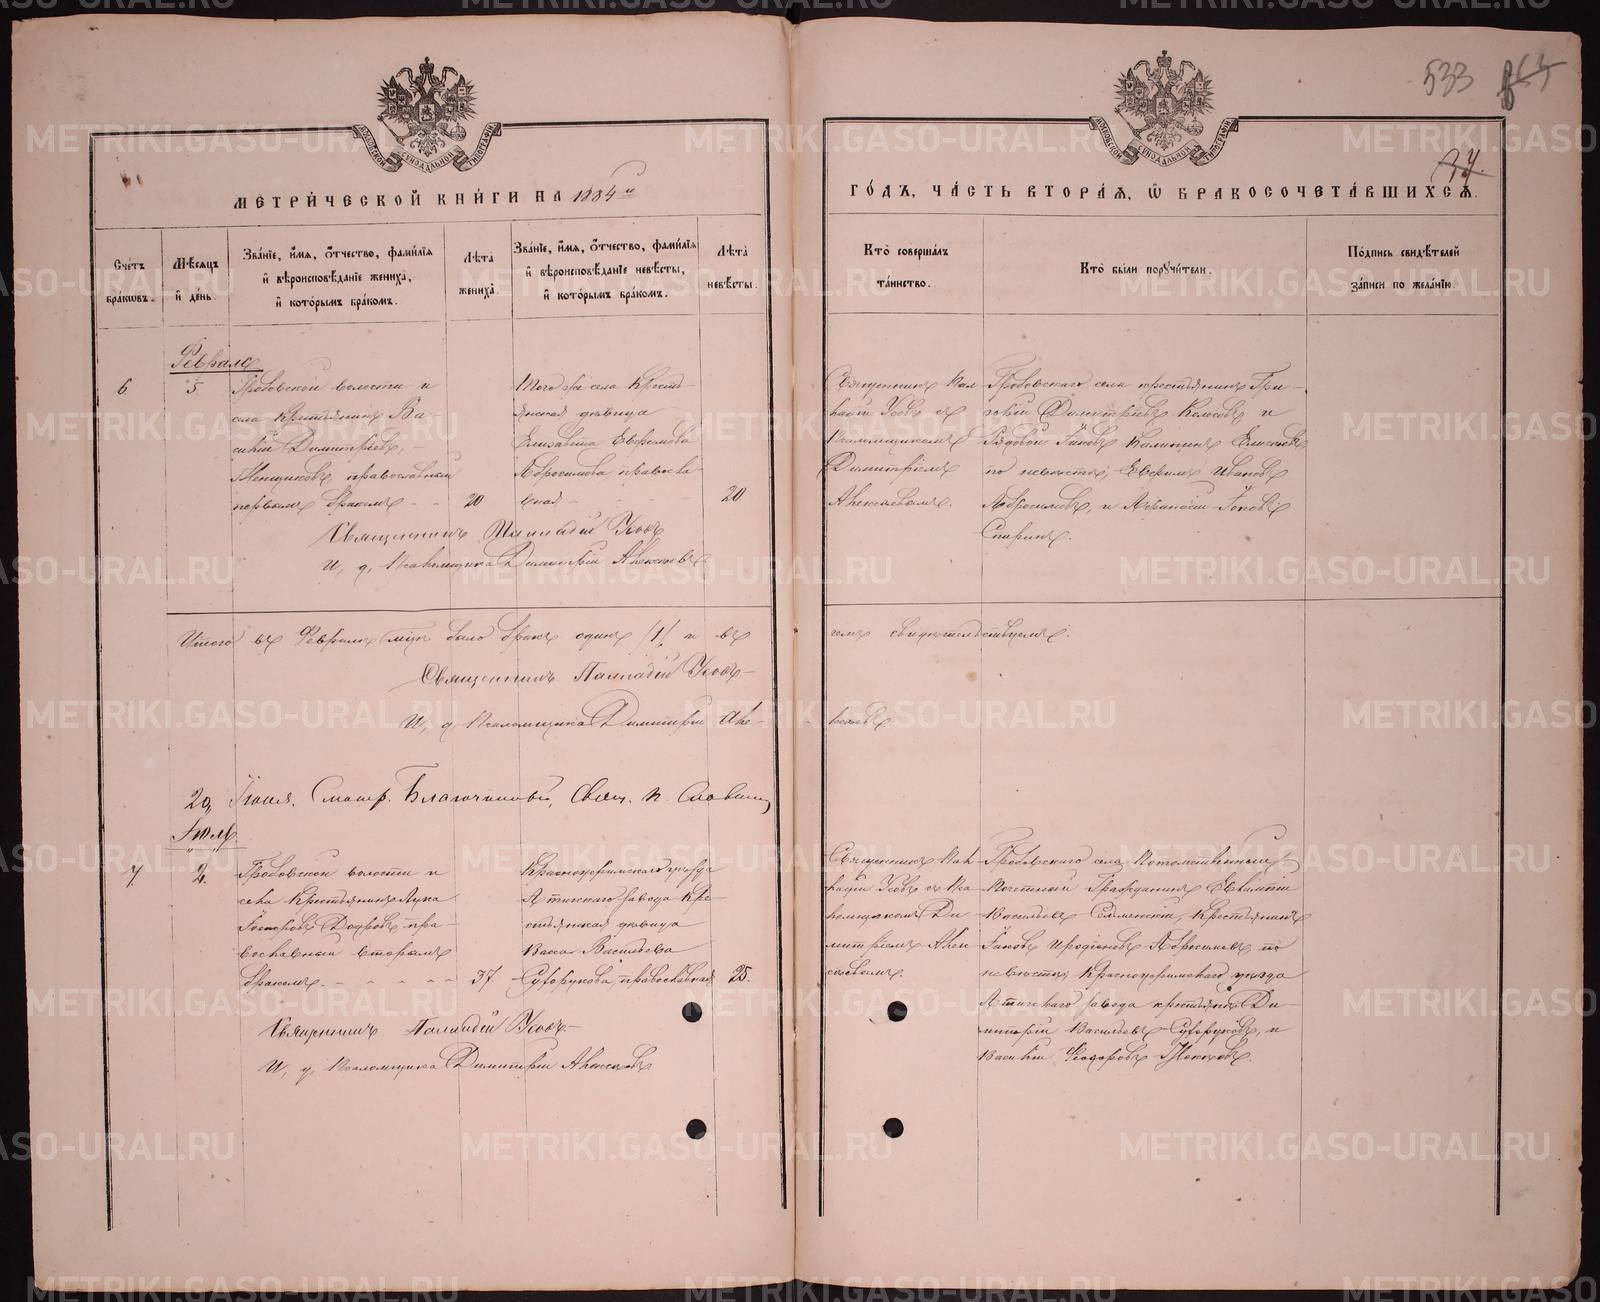 533
МЕТРИ́ЧЕСКОЙ КНИ́ГИ НА 1884й
ГО́ДЪ, ЧА́СТЬ ВТОРА́Я, Ѡ БРАКОСОЧЕТА́ВШИХСЯ.
Сче́тъ бра́кѡвъ.
Мѣ́сяцъ и́ де́нь.
Зва́нїе, и́мя, о́тчество, фами́лїя и́ вѣроисповѣ́данїе жениха̀, и́ кото́рымъ бра́комъ.
Лѣ́та жениха̀.
Зва́нїе, и́мя, о́тчество, фами́лїя и́ вѣроисповѣ́данїе невѣ́сты, и́ кото́рымъ бра́комъ.
Лѣ́та невѣ́сты.
Кто̀ соверша́лъ та́инство.
Кто̀ бы́ли поручи́тели.
По́дпись свидѣ́телей за́писи по жела́нїю.
Февраль
6
5
Гробовской волости и
села крестьянинъ Ва-
силій Димитріевъ
Менщиковъ, православный
первымъ бракомъ
20
Того же села кресть-
янская дѣвица
Елизавета Евфимова
Абросимова, правосла-
вная
20
Священникъ Пал-
ладій Усовъ съ
Псаломщикомъ
Димитріемъ
Алексѣевымъ.
Гробовскаго села крестьянинъ Гри-
горій Димитріевъ Колосовъ и
Рядовой Іаковъ Калининъ
по невѣстѣ: Евфимъ Ивановъ
Абросимовъ, и Афанасій Іововъ
Спиринъ.
Священникъ Палладій Усовъ
И. д. Псаломщика Димитрій
Итого въ Февралѣ мцѣ было бракъ одинъ /1/ и въ
чемъ свидѣтельствуемъ.
Священникъ Палладій Усовъ
И. д. Псаломщика Димитрій Але-
29. Іюля. Смотр. Благочинный, Свящ. П.
Іюль
7
2.
Гробовской волости и
села крестьянинъ Лука
пра-
вославный вторымъ
бракомъ.
37.
Красноуфимскаго уѣзда
Атигскаго завода кре-
стьянская дѣвица
Васса Васильева
Сухорукова, православная
25.
Священникъ Пал-
ладій Усовъ съ Пса-
ломщикомъ Ди-
митріемъ Алек-
сѣевымъ.
Гробовскаго села Потомственный
Почетный Гражданинъ Евѳимій
Васильевъ крестьянинъ
Іаковъ Иродіоновъ Абросимовъ по
невѣстѣ: Красноуфимскаго уѣзда
Атигскаго завода крестьяне Ди-
митрій Васильевъ Сухоруковъ, и
Василій Ѳеодоровъ
Священникъ Палладій Усовъ
И. д. Псаломщика Димитрій
METRIKI.GASO-URAL.RU